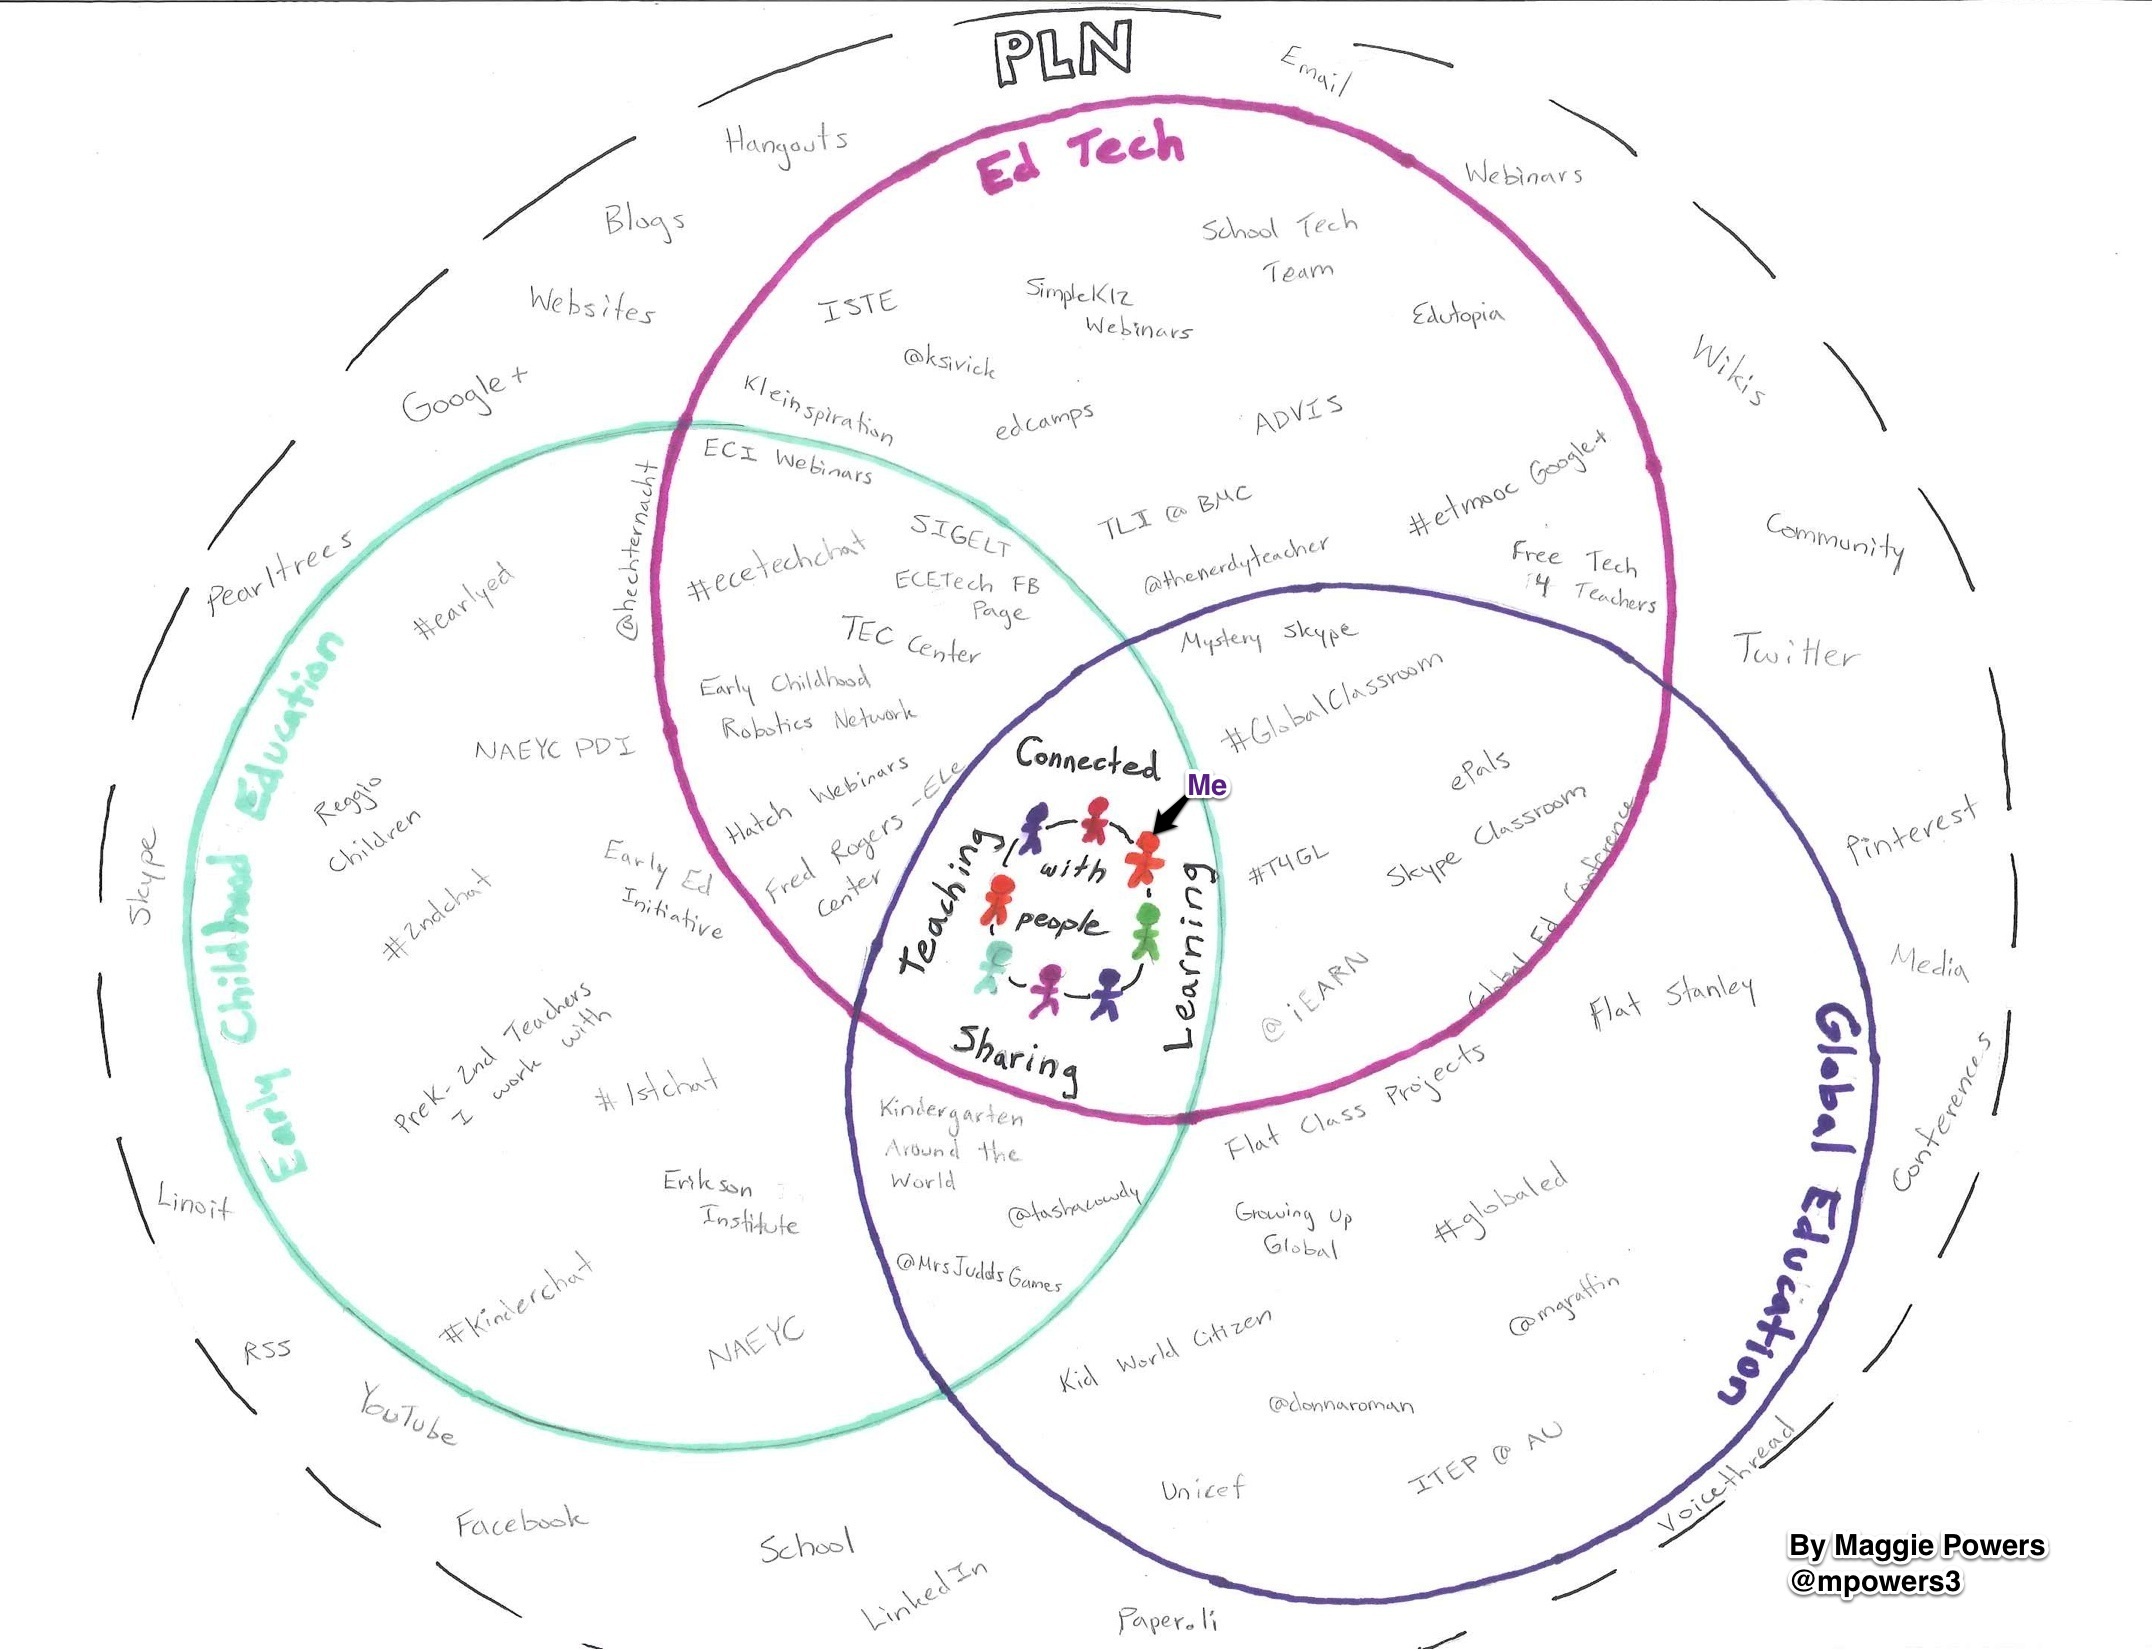 PLN
Email
Hangouts
Ed Tech
Webinars
Blogs
School Tech
Team
Websites
ISTE
SimpleK12
Webinars
Edutopia
Wikis
@ksivick
Google+
Kleinspiration
edcamps
ADVIS
ECI Webinars
#etmooc Google+
@hechternacht
TLI @ BMC
SIGELT
Community
Pearltrees
#earlyed
#ecetechchat
@thenerdyteacher
Free Tech
4 Teachers
ECETech FB
Page
TEC Center
Mystery Skype
Twitter
Early Childhood
Robotics Network
#GlobalClassroom
NAEYC PDI
Connected
Me
ePals
Reggio
Children
Hatch Webinars
Skype Classroom
Pinterest
Early Childhood Education
Skype
Early Ed
Initiative
Fred Rogers - ELE
Center
Teaching
with
people
Learning
Sharing
#T4GL
Global Ed Conference
#2ndchat
@iEARN
Flat Stanley
Media
PreK-2nd Teachers
I work with
#1stchat
Flat Class Projects
Global Education
Conferences
Kindergarten
Around the
World
Linoit
Erikson
Institute
@tashacowdy
Growing Up
Global
#globaled
@MrsJuddsGames
#Kinderchat
NAEYC
Kid World Citizen
@mgraffin
RSS
YouTube
@donnaroman
Unicef
ITEP @ AU
Voicethread
Facebook
School
LinkedIn
Paper.li
By Maggie Powers
@mpowers3